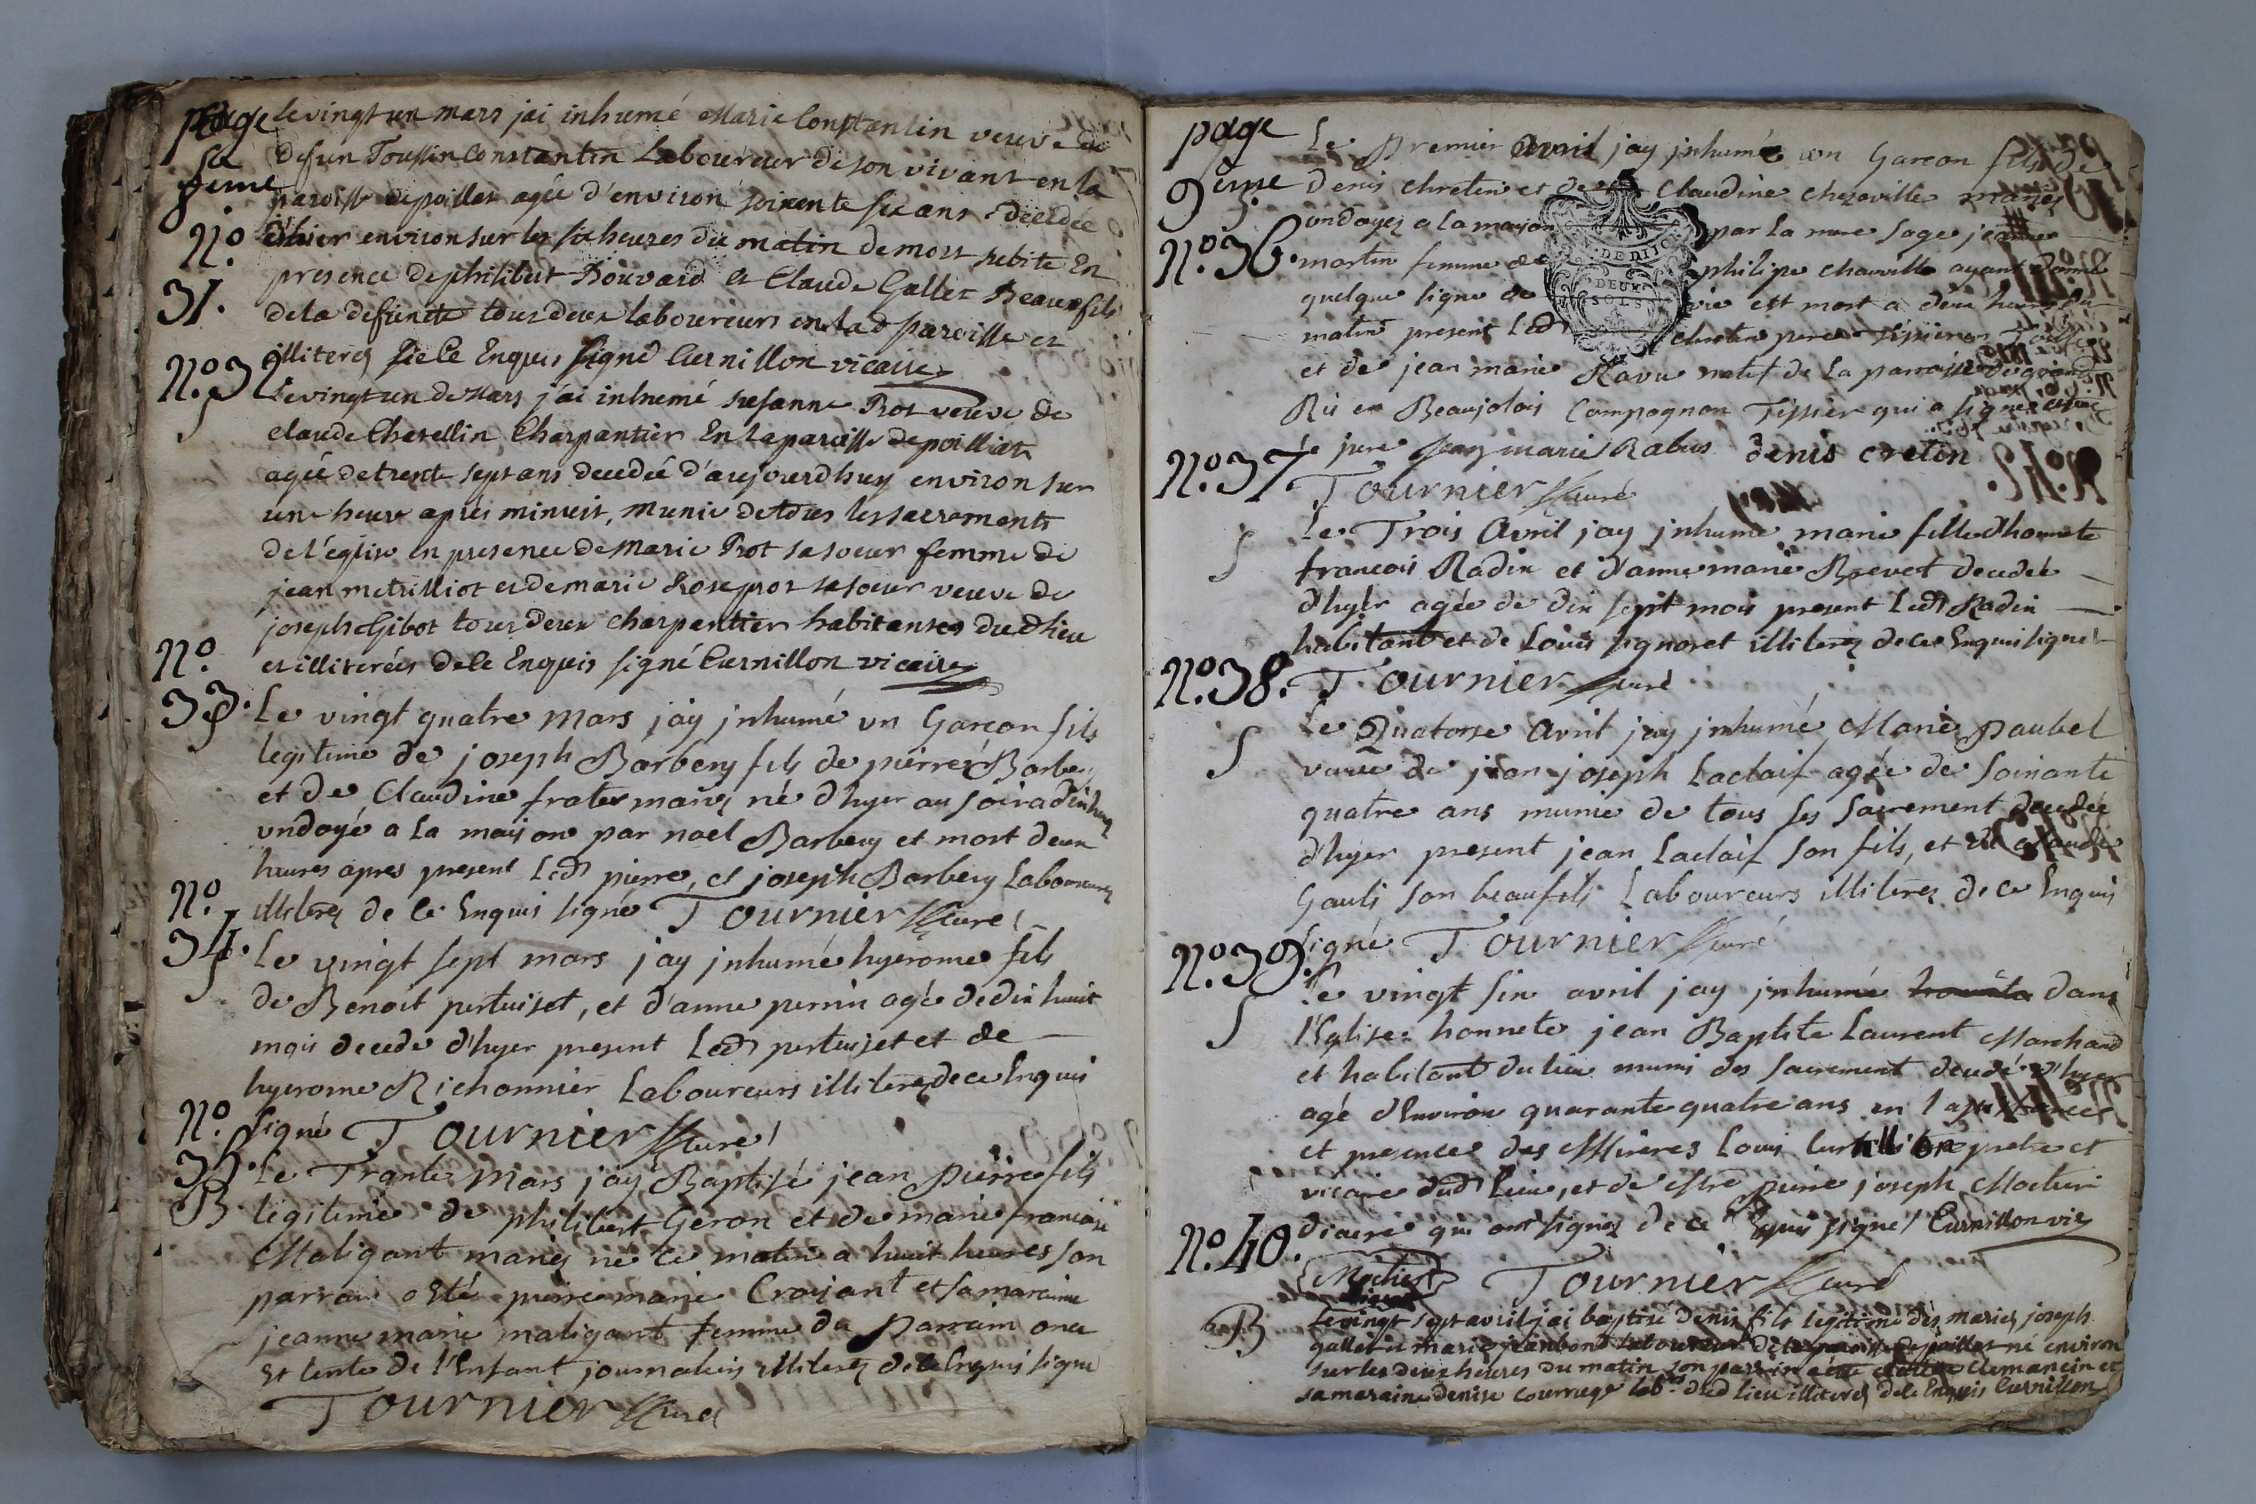 page
la
8eme
le vingt un mars jai inhumé Marie Constantin veuve de
defun Toussin Constantin Laboureur de son vivant en la
paroisse de poillat agée d'environ soixente six ans decedée
d'hier environ sur les six heures du matin de mort subite En
presence de philibert Bouvard et Claude Gallet Beauxfils
de la defuncte tous deux laboureurs en lad paroisse et
illiterez de ce Enquis signé Curnillon vicaire
No
31.
No. 32
S
le vingt un de Mars j'ai inhumé susanne Prot veuve de
claude Chatellin Charpantier En la paroisse de poilliat
agée de trente sept ans decedée d'aujourdhuy environ sur
une heure aprés minuit, munie de toues les sacrements
de l'église en presence de marie Prot sa soeur femme de
jean metrilliot et de marie Rose prot sa soeur veuve de
joseph Gibot tous deux charpentier habitantes dudlieu
et illiterées de ce Enquis signé Curnillon vicaire
No.
33.
S
Le vingt quatre mars jay jnhumé vn Garcon fils
legitime de joseph Barbery fils de pierre Barbery
et de Claudine frater mariez né d'hyer au soir a dix heures
vndoyé a la maison par noel Barbery et mort deux
heures apres present Led pierre, et joseph Barbery Laboureurs
illiterez de ce Enquis signé Tournier Curé
No.
34.
S
Le vingt sept mars jay jnhumé hyerome fils
de Benoit pertuiset, et d'anne perrin agé de dix huit
mois decede d'hyer present Led pertuiset et de
hyerome Richonnier Laboureurs illiterez de ce Enquis
signé Tournier Curé
No.
35.
B
Le Trante Mars jay Baptisé jean pierre fils
legitime de philibert Geron et de marie francoise
Maligant mariez né ce matin a huit heures son
parrain a Eté pierre marie Croijant et sa maraine
jeanne marie maligant femme du parrain oncle
Et tente de l'Enfant journaliers illiterez de ce Enquis signé
Tournier Curé
page
9eme
No. 36.
S
Le Premier avril jay jnhumé un Garcon fils de
denis chretin et de Claudine chezaville mariez
ondoyez a la maison par La mere sage jeanne
martin femme de philipe chavville ayant donné
quelque signe de vie est mort a deux heures du
matin present Led chretin pere Tissier
et de jean marie Ravu natif de La parroisse de grand
Ris en Beaujolois Compagnon Tissier qui a signé avec
le pere jean marie Rabus denis cretin
Tournier Curé
DE DIJON
DEUX
SOLS
No. 37.
S
Le Trois Avril jay jnhumé marie fille dhonnete
francois Radix et d'anne marie Brevet decedée
d'hyer agée de dix sept mois present Led Radix
habitant et de Louis signoret illiterez de ce Enquis signé
Tournier Curé
No. 38.
S
Le Quatorse Avril jay jnhumé Marie Paubel
veuve de jean joseph Laclaix agée de Soixante
quatre ans munie de tous ses sacrement decedée
d'hyer present jean Laclaix son fils, et de Claude
Gauli son beaufils Laboureurs illiterez de ce Enquis
signé Tournier Curé
No. 39.
S
Le vingt six avril jay jnhumé dans
l'Eglise honnete jean Baptiste Laurent Marchand
et habitant du lieu muni des sacrement decedé d'hyer
agé d'Environ quarante quatre ans en l'assistance
et presence des Messires Louis Curnillon pretre et
vicaire dud Lieu, et de Mre pierre joseph
diacre qui ont signez de ce Enquis signé Curnillon vic
Tournier Curé
No. 40.
B
le vingt sept avril jai baptisé denis fils legitime des mariez joseph
gallet et marie jeanbond laboureur de la paroisse de poillat né environ
sur les deux heures du matin son parrin a été claude Clemancin et
sa maraine denise courrege labrs dud lieu illiterez de ce Enquis Curnillon